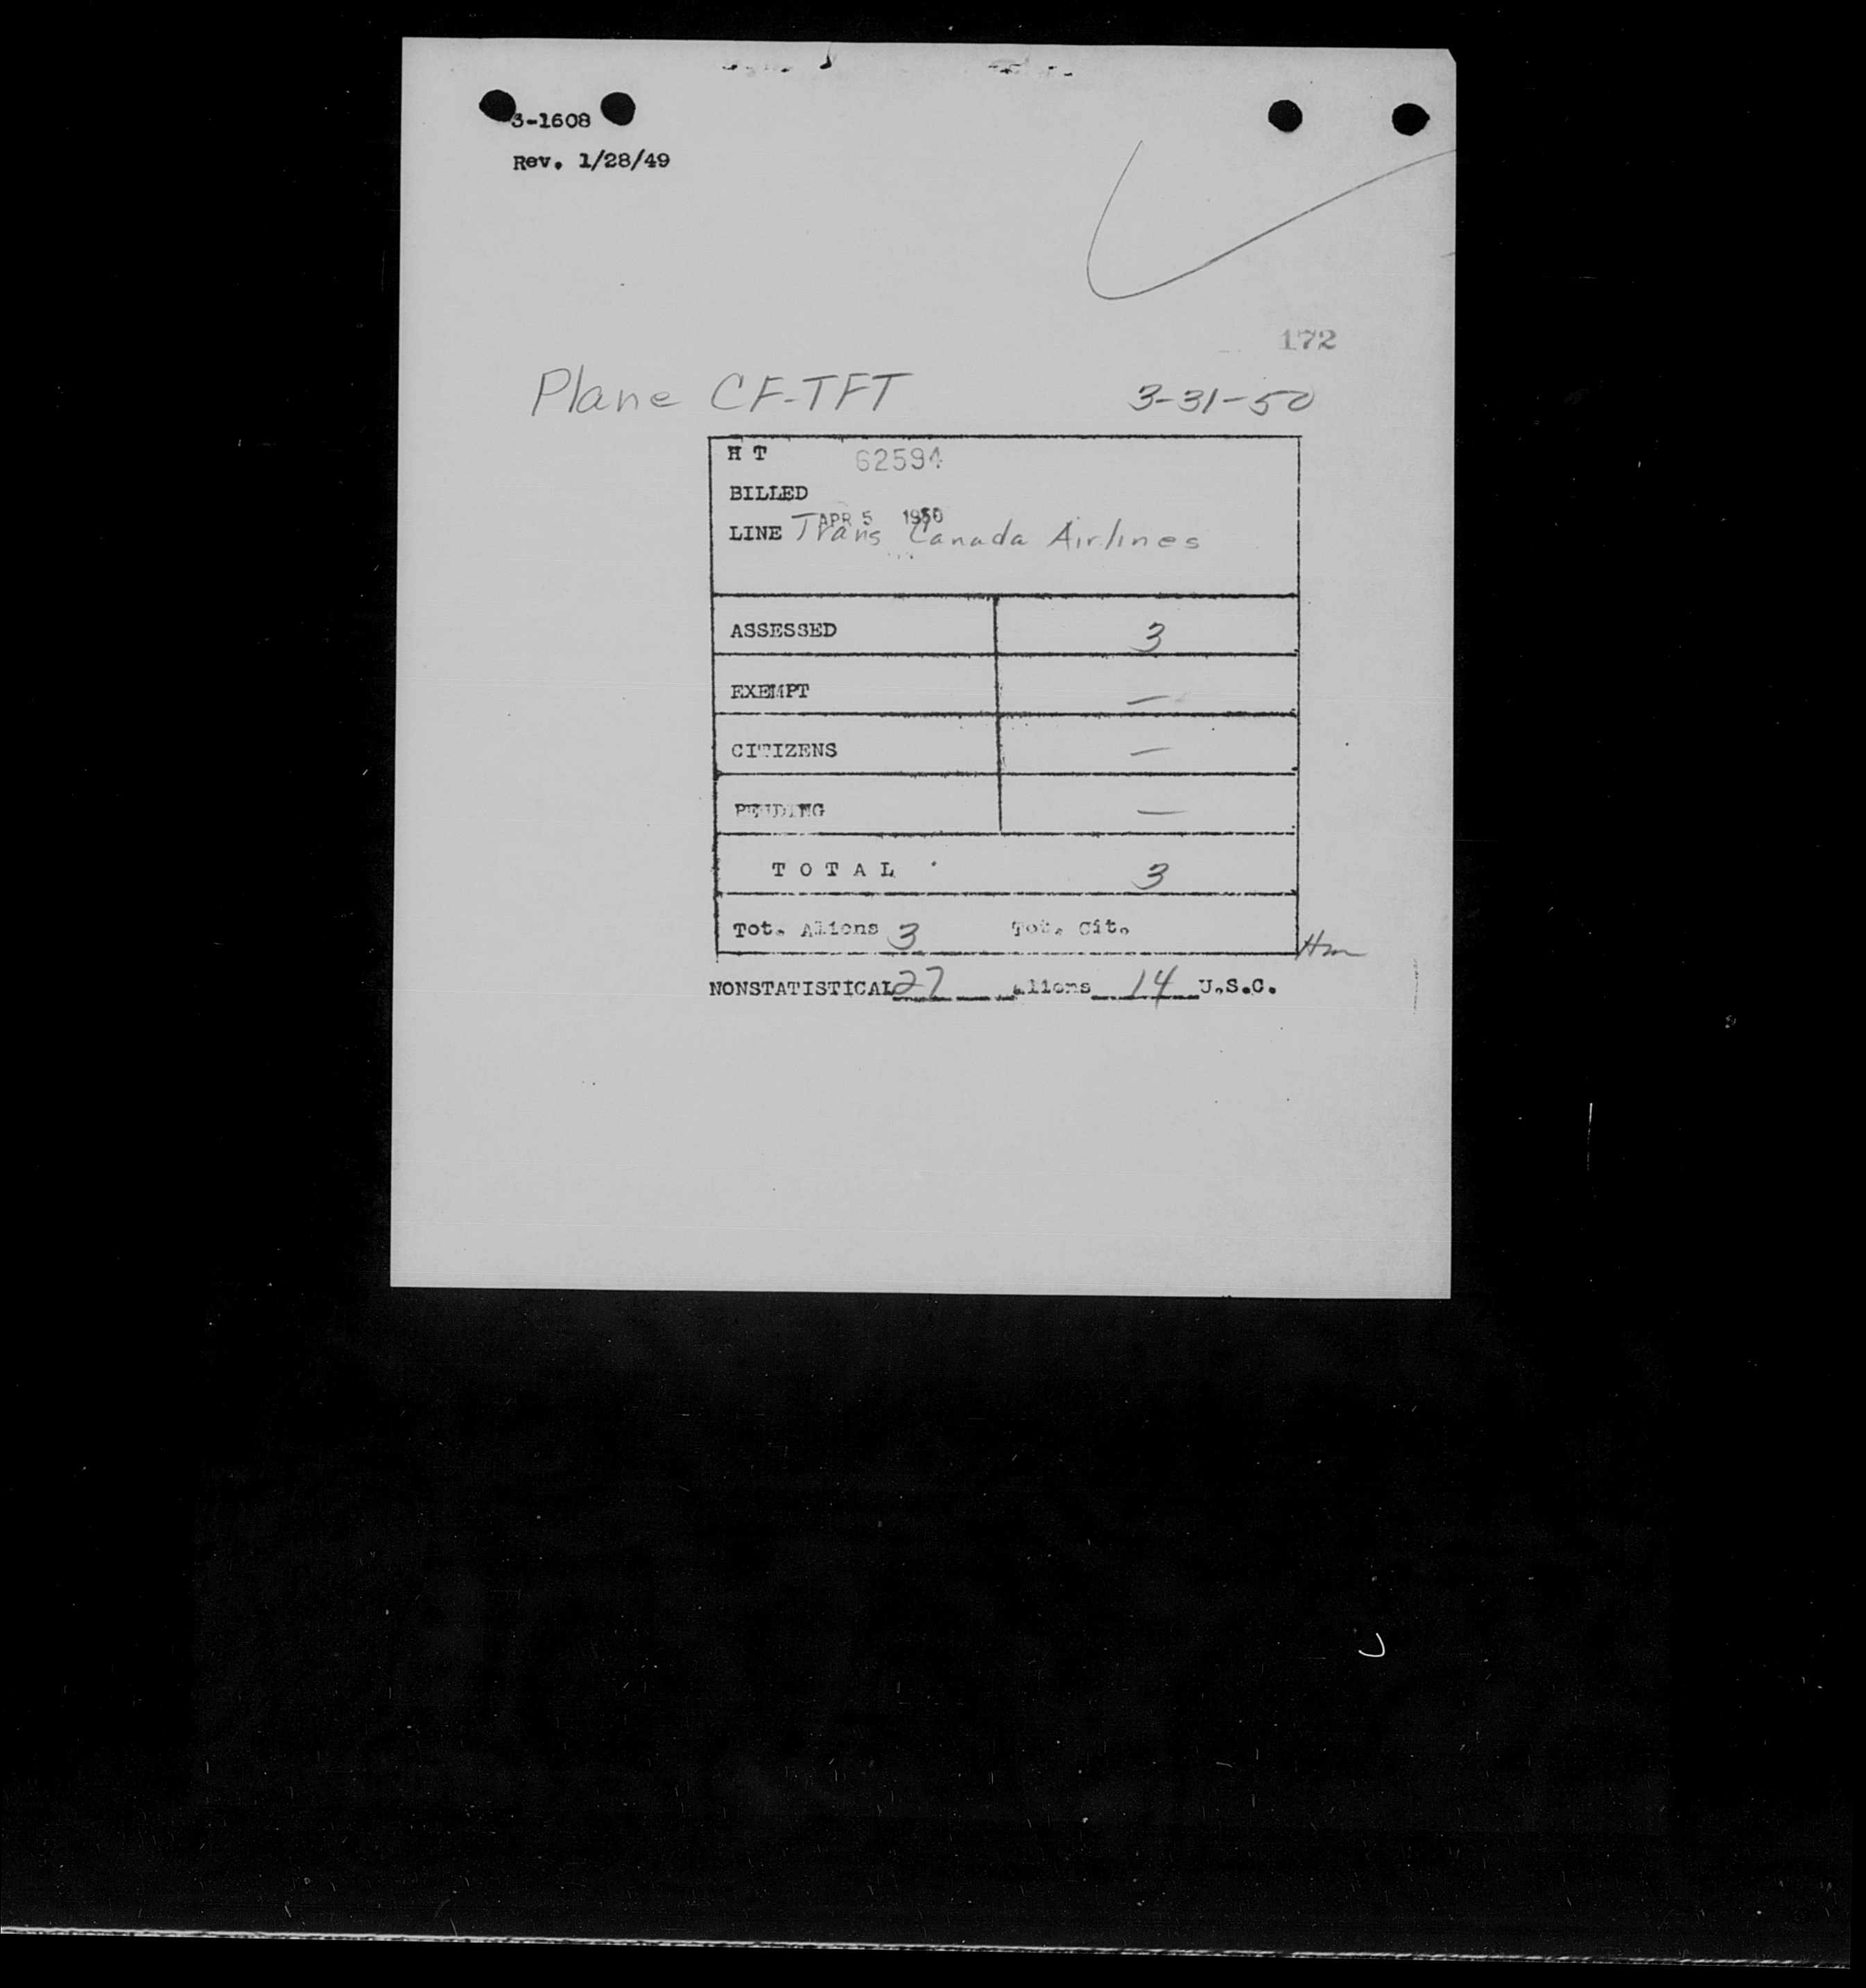 3-1608
Rev. 1/28/49
172
Plane CF-TFT 3-31-50
H T 62594
BILLED
APR 5 1950
LINE Trans Canada Airlines
ASSESSED 3
EXEMPT —
CITIZENS —
PENDING —
T O T A L 3
Tot. Aliens 3 Tot. Cit.
Hm
NONSTATISTICAL 27 Aliens 14 U.S.C.